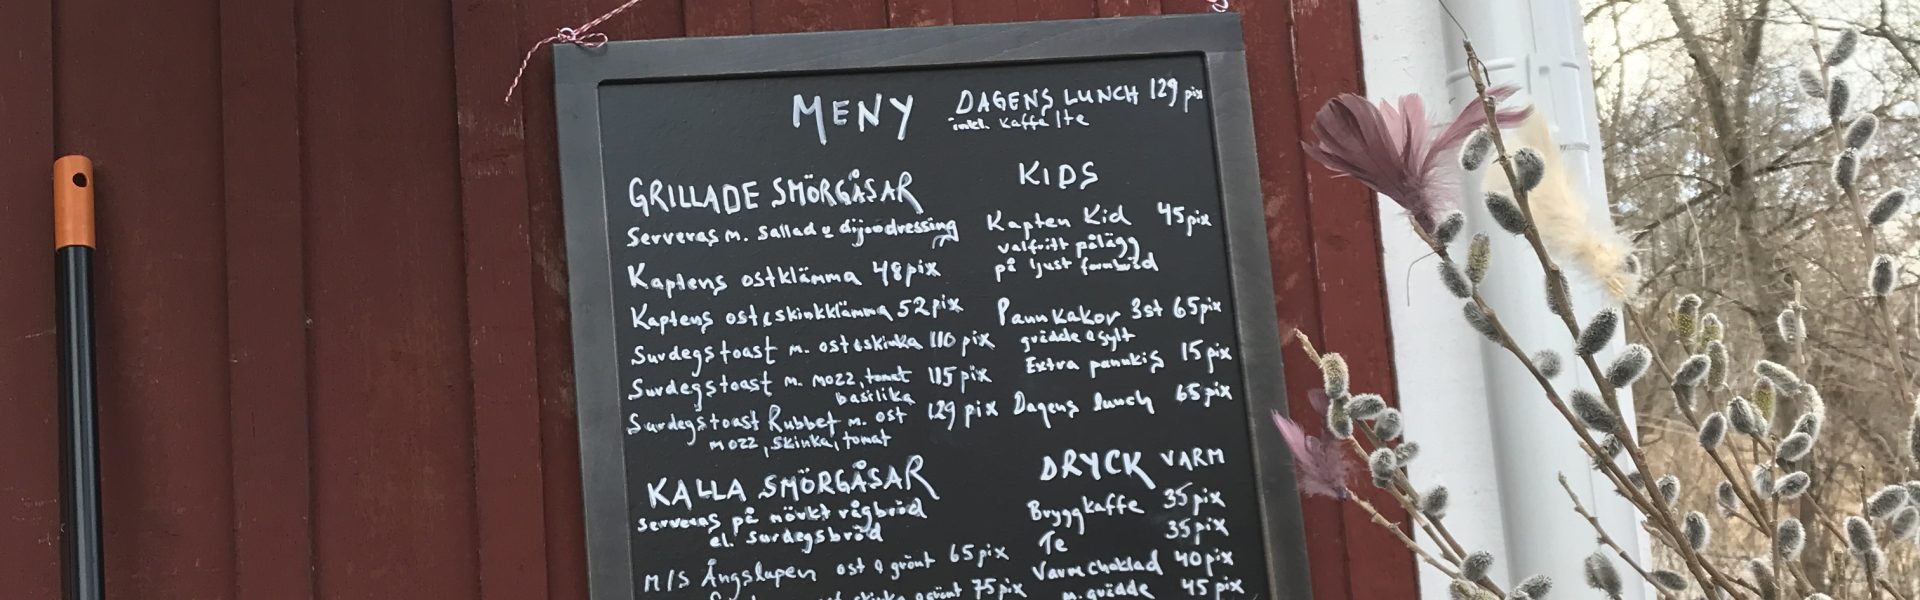 MENY
DAGENS LUNCH 129 pix
inkl. kaffe/te
GRILLADE SMÖRGÅSAR
Serveras m. sallad o dijondressing
Kaptens ostklämma 48 pix
Kaptens ost & skinkklämma 52 pix
Surdegstoast m. ost & skinka 110 pix
Surdegstoast m. mozz, tomat 115 pix
basilika
Surdegstoast Rubbet m. ost 129 pix
mozz, skinka, tomat
KALLA SMÖRGÅSAR
serveras på mörkt rågbröd
el. surdegsbröd
M/S Ångslupen ost o grönt 65 pix
skinka o grönt 75 pix
KIDS
Kapten Kid 45 pix
valfritt pålägg
på ljust formbröd
Pannkakor 3st 65 pix
grädde o sylt
Extra pannkis 15 pix
Dagens lunch 65 pix
DRYCK VARM
Bryggkaffe 35 pix
Te 35 pix
Varm choklad 40 pix
m. grädde 45 pix